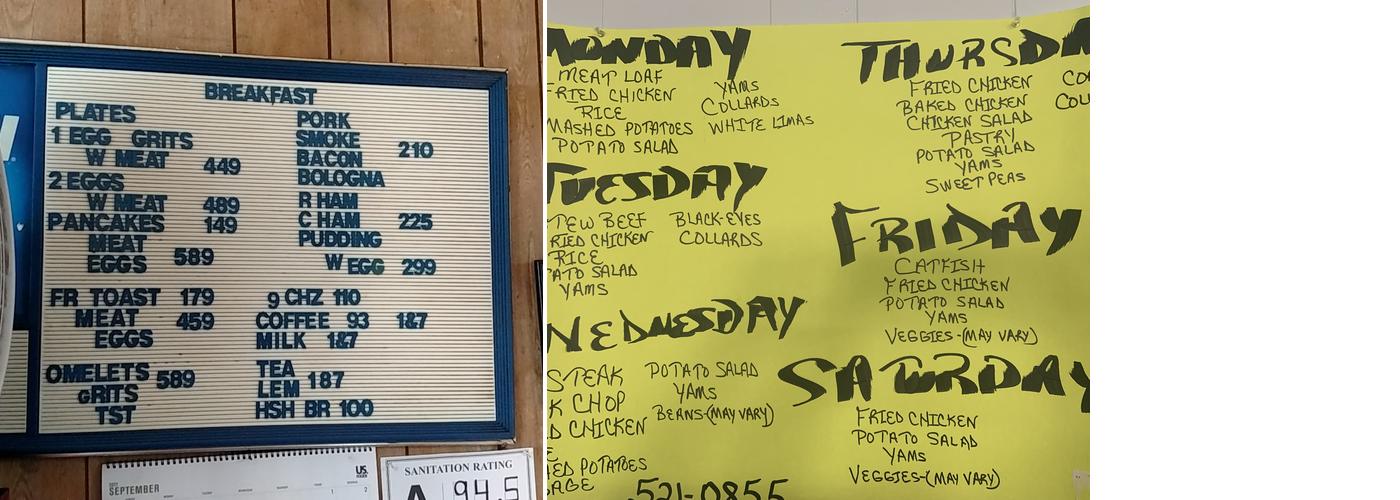 BREAKFAST
PLATES
1 EGG GRITS
W MEAT 449
2 EGGS
W MEAT 489
PANCAKES 149
MEAT
EGGS 589
FR TOAST 179
MEAT 459
EGGS
OMELETS 589
GRITS
TST
PORK
SMOKE
BACON 210
BOLOGNA
R HAM
C HAM 225
PUDDING
W EGG 299
9 CHZ 110
COFFEE 93 187
MILK 187
TEA
LEM 187
HSH BR 100
SEPTEMBER
US.
SANITATION RATING
A 94.5
MONDAY
MEAT LOAF
FRIED CHICKEN
RICE
MASHED POTATOES
POTATO SALAD
YAMS
COLLARDS
WHITE LIMAS
TUESDAY
TEW BEEF
RIED CHICKEN
RICE
ATO SALAD
YAMS
BLACK-EYES
COLLARDS
WEDNESDAY
STEAK
K CHOP
D CHICKEN
ED POTATOES
AGE
POTATO SALAD
YAMS
BEANS-(MAY VARY)
521-0855
THURSDA
FRIED CHICKEN
BAKED CHICKEN
CHICKEN SALAD
PASTRY
POTATO SALAD
YAMS
SWEET PEAS
CO
COLL
FRIDAY
CATFISH
FRIED CHICKEN
POTATO SALAD
YAMS
VEGGIES-(MAY VARY)
SATURDAY
FRIED CHICKEN
POTATO SALAD
YAMS
VEGGIES-(MAY VARY)